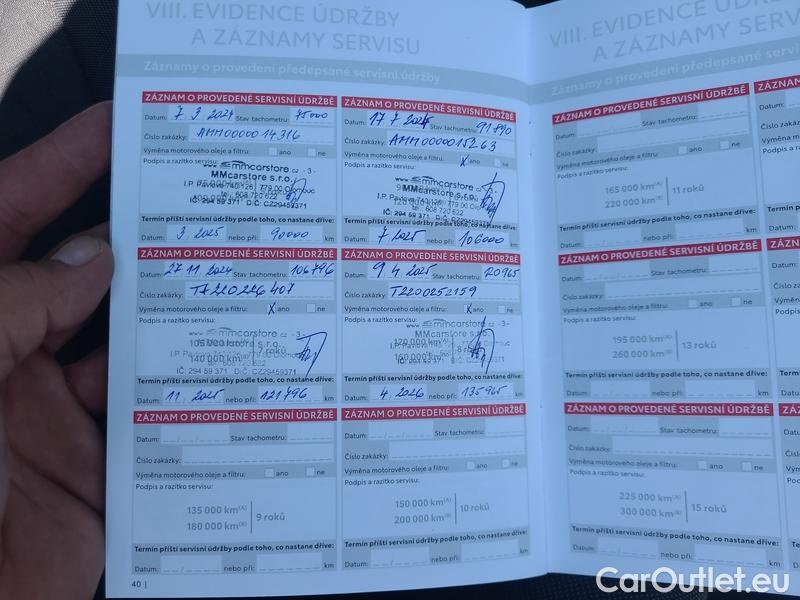 VIII. EVIDENCE ÚDRŽBY
A ZÁZNAMY SERVISU
Záznamy o provedení předepsané servisní údržby
ZÁZNAM O PROVEDENÉ SERVISNÍ ÚDRŽBĚ
Datum: 7 3 2024 Stav tachometru: 75000
Číslo zakázky: AMM0000014316
Výměna motorového oleje a filtru: ano ne
Podpis a razítko servisu:
mmcarstore cz - 3 -
MMcarstore s.r.o.
I.P. Pavlova 740/126, 779 00 Olomouc
tel.: 608 720 622
IČ: 294 59 371 DIČ: CZ29459371
Termín příští servisní údržby podle toho, co nastane dříve:
Datum: 3 2025 nebo při: 90000 km
ZÁZNAM O PROVEDENÉ SERVISNÍ ÚDRŽBĚ
Datum: 17 7 Stav tachometru: 91790
Číslo zakázky:
Výměna motorového oleje a filtru: X ano ne
Podpis a razítko servisu:
mmcarstore cz - 3 -
MMcarstore s.r.o.
IČ: 294 59 371 DIČ: CZ29459371
Termín příští servisní údržby podle toho, co nastane dříve:
Datum: 7 2025 nebo při: 106000 km
ZÁZNAM O PROVEDENÉ SERVISNÍ ÚDRŽBĚ
Datum: 27 11 2024 Stav tachometru: 106796
Číslo zakázky:
Výměna motorového oleje a filtru: X ano ne
Podpis a razítko servisu:
mmcarstore cz - 3 -
140 000 km
IČ: 294 59 371 DIČ: CZ29459371
Termín příští servisní údržby podle toho, co nastane dříve:
Datum: 11 2025 nebo při: 121796 km
ZÁZNAM O PROVEDENÉ SERVISNÍ ÚDRŽBĚ
Datum: 9 4 2025 Stav tachometru: 120965
Číslo zakázky: T2200252159
Výměna motorového oleje a filtru: X ano ne
Podpis a razítko servisu:
mmcarstore cz - 3 -
MMcarstore s.r.o.
120 000 km
160 000 km
IČ: 294 59 371 DIČ: CZ29459371
Termín příští servisní údržby podle toho, co nastane dříve:
Datum: 4 2026 nebo při: 135965 km
ZÁZNAM O PROVEDENÉ SERVISNÍ ÚDRŽBĚ
Datum: Stav tachometru: km
Číslo zakázky:
Výměna motorového oleje a filtru: ano ne
Podpis a razítko servisu:
135 000 km(A)
180 000 km(B) 9 roků
Termín příští servisní údržby podle toho, co nastane dříve:
Datum: nebo při: km
ZÁZNAM O PROVEDENÉ SERVISNÍ ÚDRŽBĚ
Datum: Stav tachometru: km
Číslo zakázky:
Výměna motorového oleje a filtru: ano ne
Podpis a razítko servisu:
150 000 km(A)
200 000 km(B) 10 roků
Termín příští servisní údržby podle toho, co nastane dříve:
Datum: nebo při: km
40 |
VIII. EVIDENCE
A ZÁZNAMY SERV
Záznamy o provedení předepsané
ZÁZNAM O PROVEDENÉ SERVISNÍ ÚDRŽBĚ
Datum: Stav tachometru: km
Číslo zakázky:
Výměna motorového oleje a filtru: ano ne
Podpis a razítko servisu:
165 000 km(A)
220 000 km(B) 11 roků
Termín příští servisní údržby podle toho, co nastane dříve:
Datum: nebo při: km
ZÁZNAM O PROVEDENÉ SERVISNÍ ÚDRŽBĚ
Datum: Stav tachometru: km
Číslo zakázky:
Výměna motorového oleje a filtru: ano ne
Podpis a razítko servisu:
195 000 km(A)
260 000 km(B) 13 roků
Termín příští servisní údržby podle toho, co nastane dříve:
Datum: nebo při: km
ZÁZNAM O PROVEDENÉ SERVISNÍ ÚDRŽBĚ
Datum: Stav tachometru: km
Číslo zakázky:
Výměna motorového oleje a filtru: ano ne
Podpis a razítko servisu:
225 000 km(A)
300 000 km(B) 15 roků
Termín příští servisní údržby podle toho, co
Datum:
CarOutlet.eu